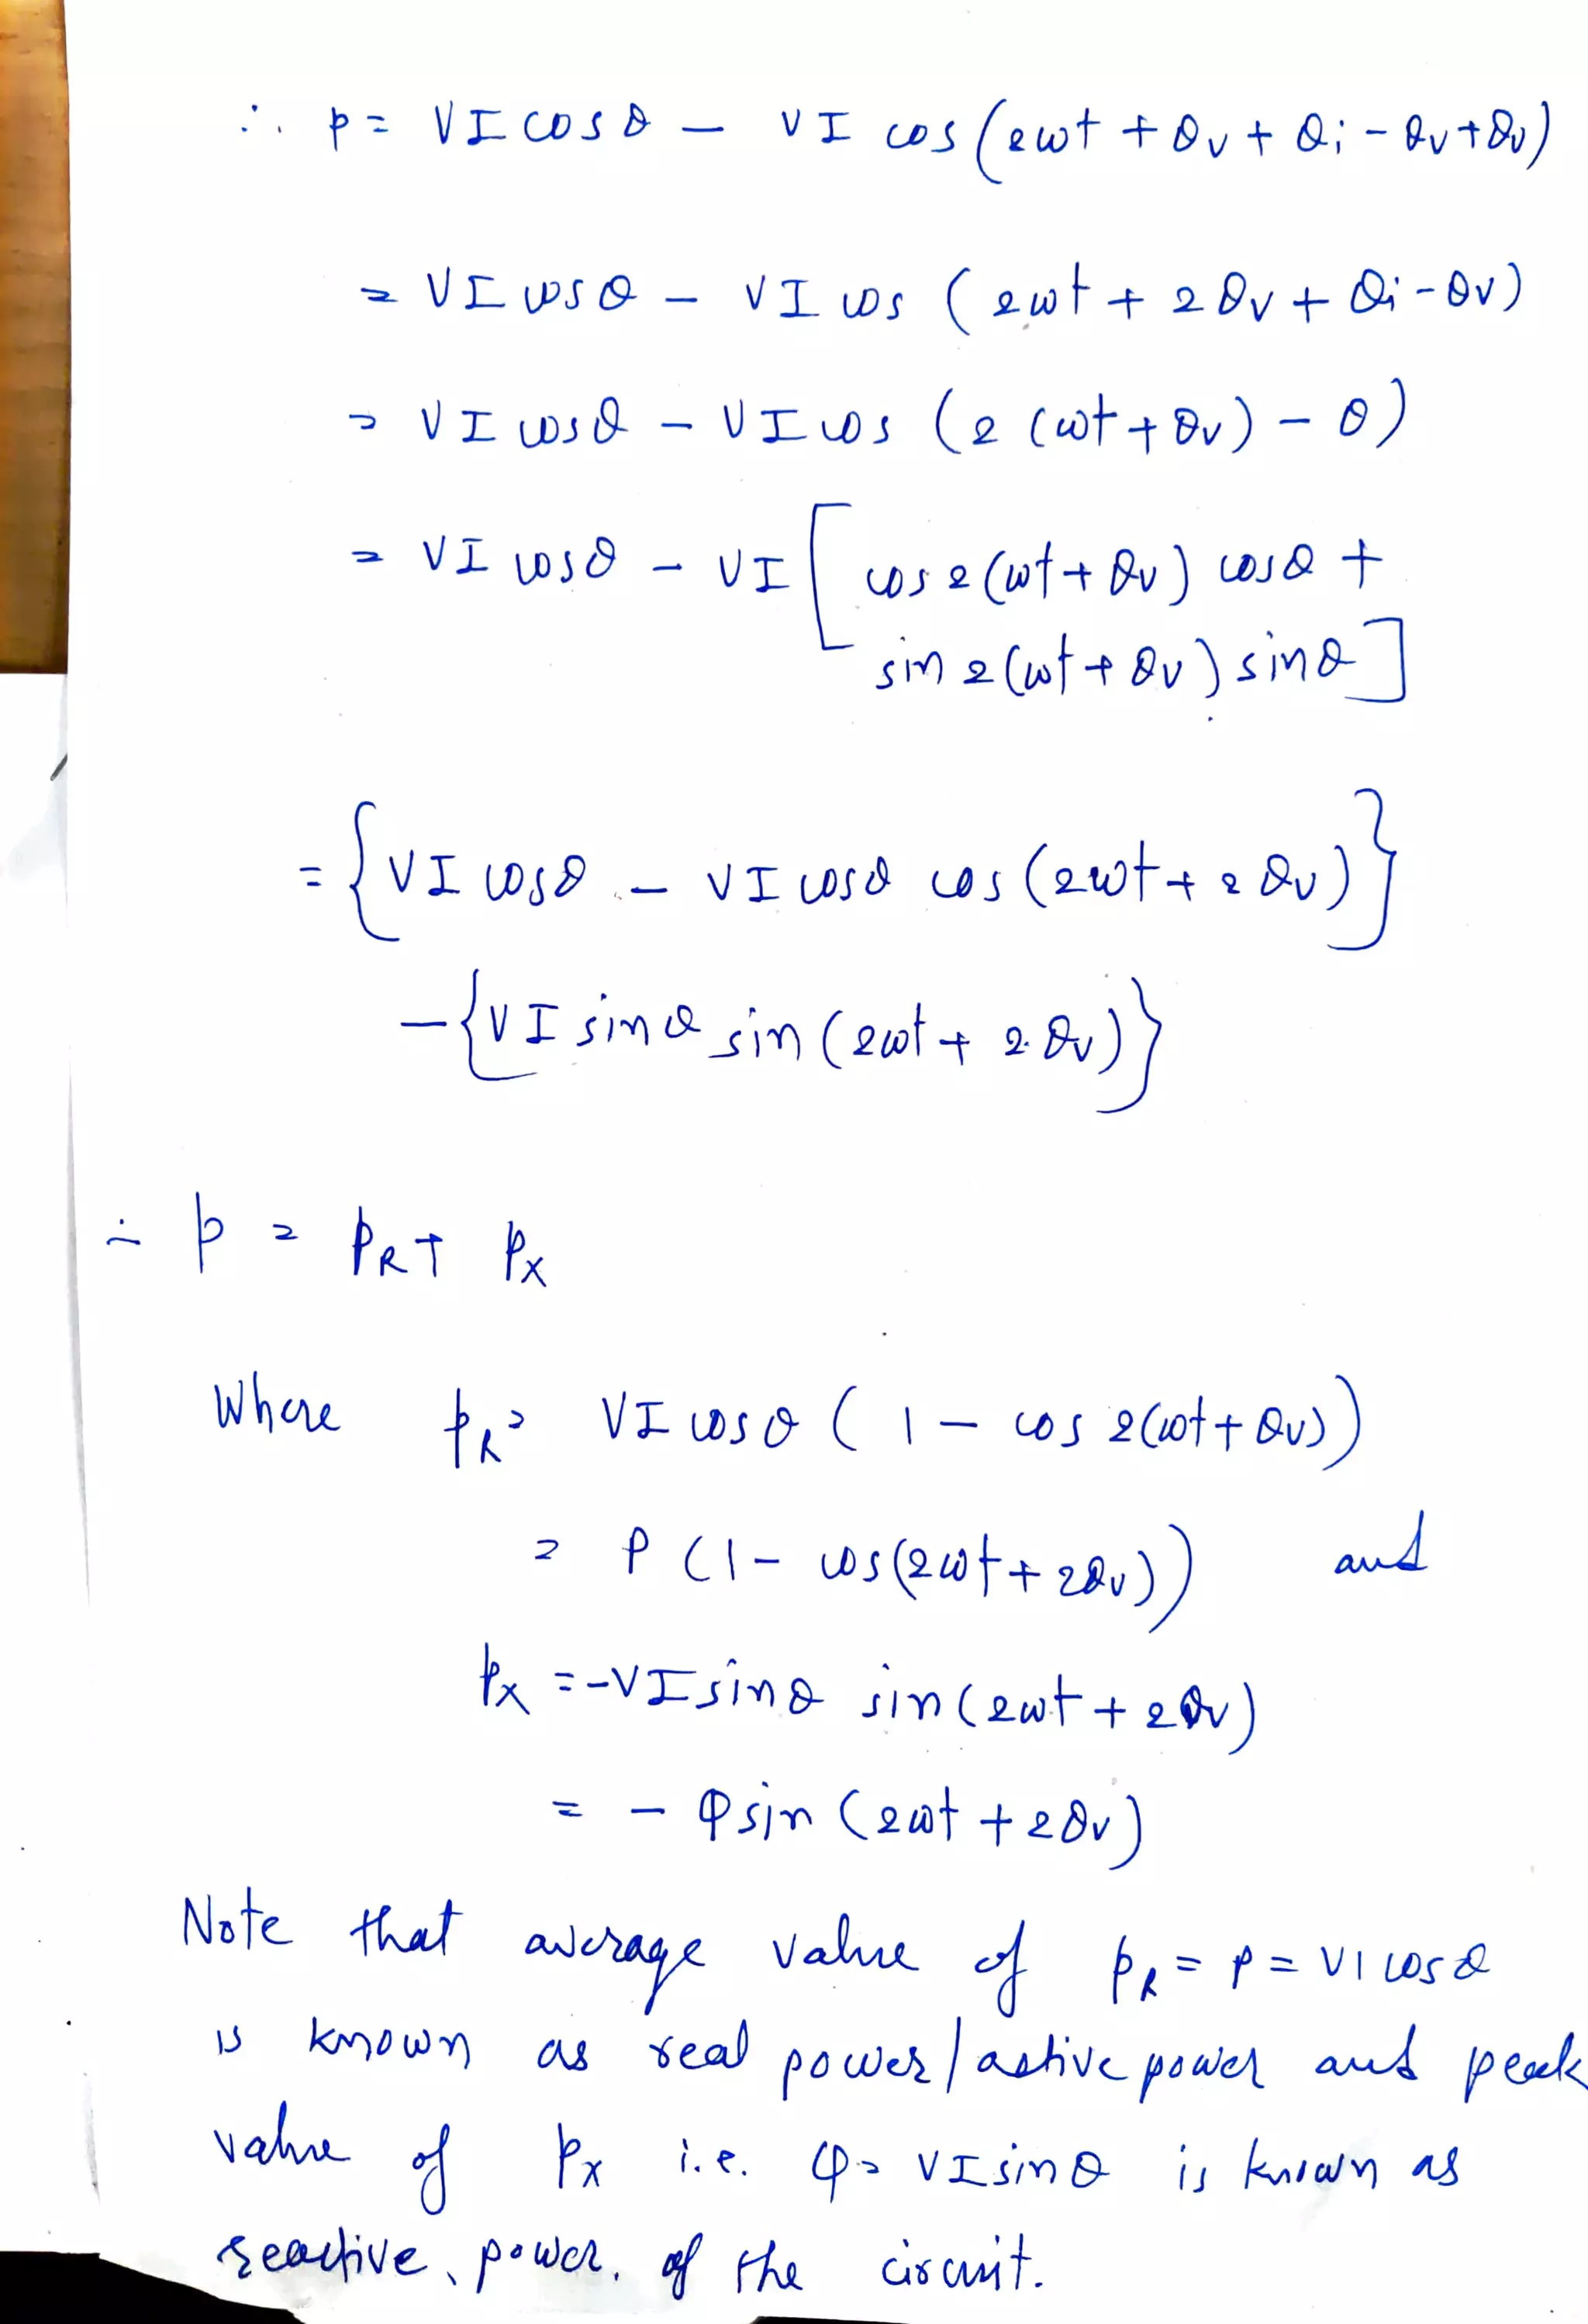 ∴ p = VI cosθ − VI cos(2ωt + θv + θi − θv + θv)
= VI cosθ − VI cos (2ωt + 2θv + θi − θv)
= VI cosθ − VI cos (2 (ωt + θv) − θ)
= VI cosθ − VI [ cos 2(ωt + θv) cosθ +
sin 2(ωt + θv) sinθ ]
= {VI cosθ − VI cosθ cos(2ωt + 2θv)}
− {VI sinθ sin(2ωt + 2θv)}
∴ p = pR + pX
Where pR = VI cosθ ( 1 − cos 2(ωt + θv))
= P (1 − cos(2ωt + 2θv)) and
pX = −VI sinθ sin(2ωt + 2θv)
= − Q sin (2ωt + 2θv)
Note that average value of pR = P = VI cosθ
is known as real power/active power and peak
value of pX i.e. Q = VI sinθ is known as
reactive power of the circuit.